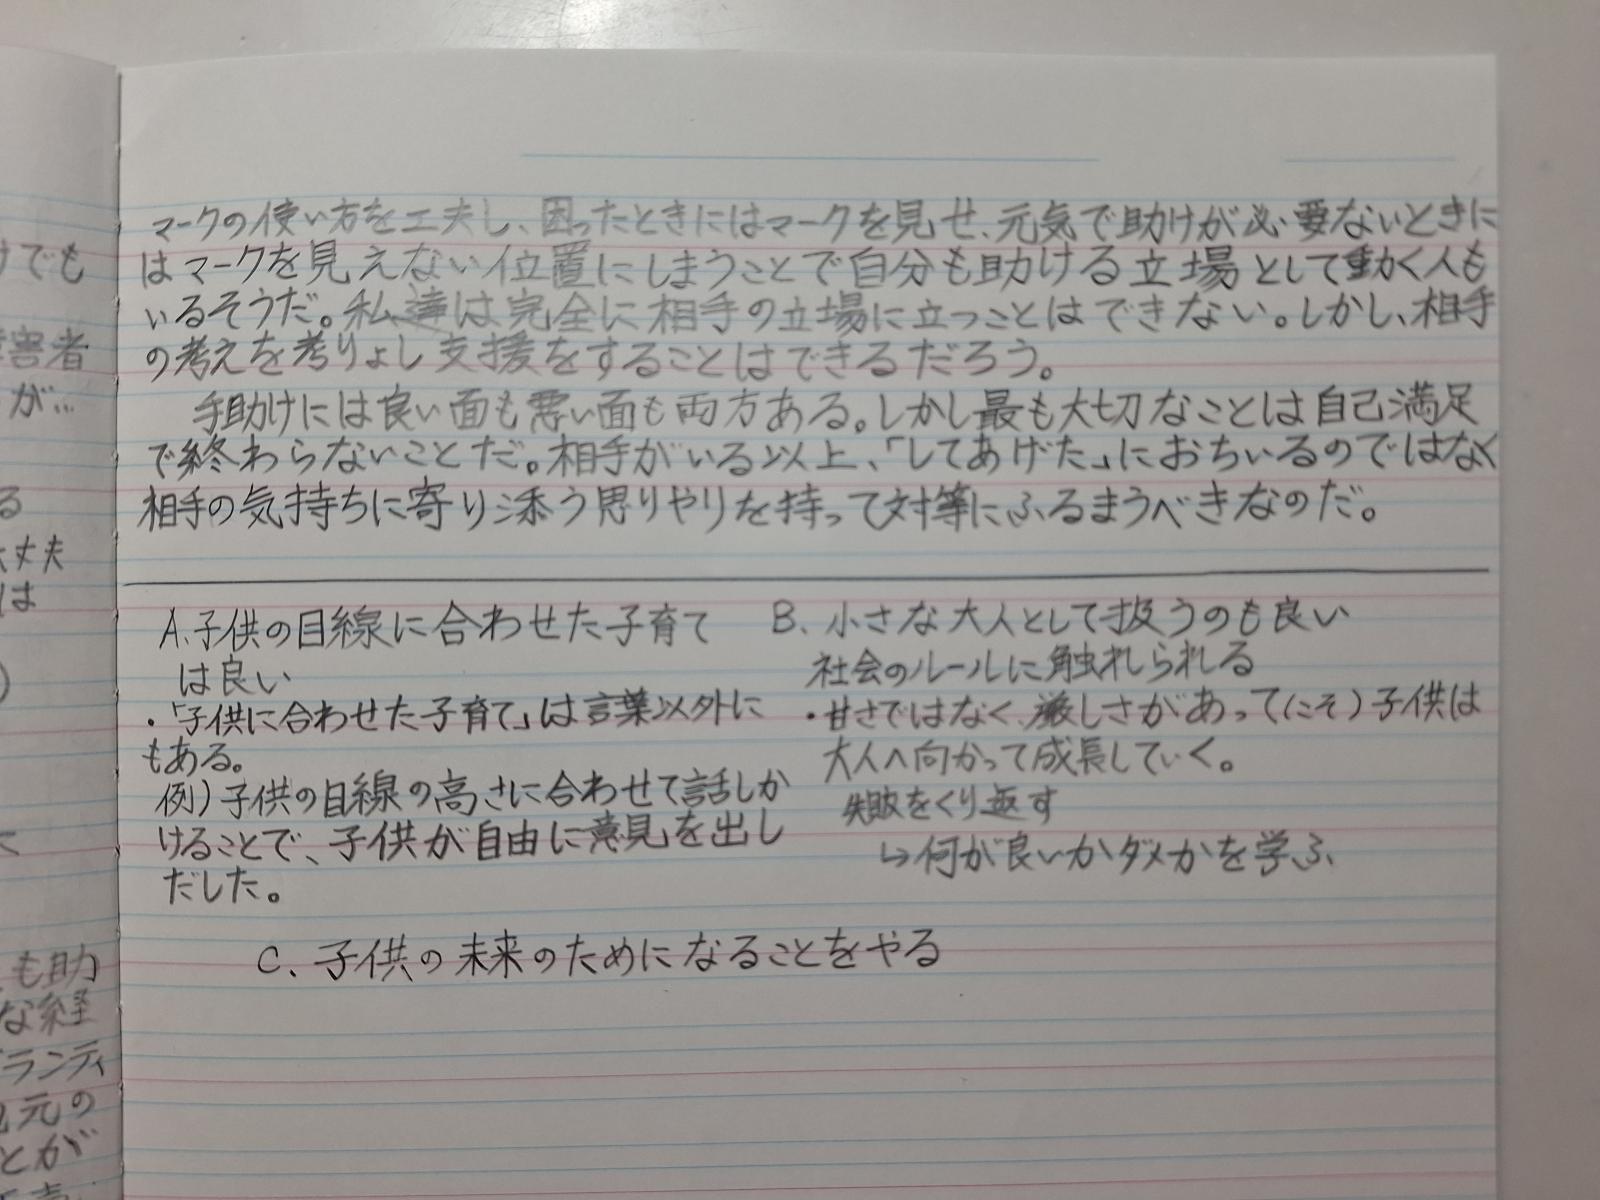 マークの使い方を工夫し、困ったときにはマークを見せ、元気で助けが必要ないときに
はマークを見えない位置にしまうことで自分も助ける立場として動く人も
いるそうだ。私達は完全に相手の立場に立つことはできない。しかし、相手
の考えを考りょし支援をすることはできるだろう。
手助けには良い面も悪い面も両方ある。しかし最も大切なことは自己満足
で終わらないことだ。相手がいる以上、「してあげた」におちいるのではなく
相手の気持ちに寄り添う思りやりを持って対等にふるまうべきなのだ。
A.子供の目線に合わせた子育て
は良い
・「子供に合わせた子育て」は言葉以外に
もある。
例)子供の目線の高さに合わせて話しか
けることで、子供が自由に意見を出し
だした。
B. 小さな大人として扱うのも良い
社会のルールに触れられる
・甘さではなく、厳しさがあって(こそ)子供は
大人へ向かって成長していく。
失敗をくり返す
↳何が良いかダメかを学ぶ
C. 子供の未来のためになることをやる
けでも
害者
が…
る
丈夫
は
)
も助
な経
ランティ
元の
とが